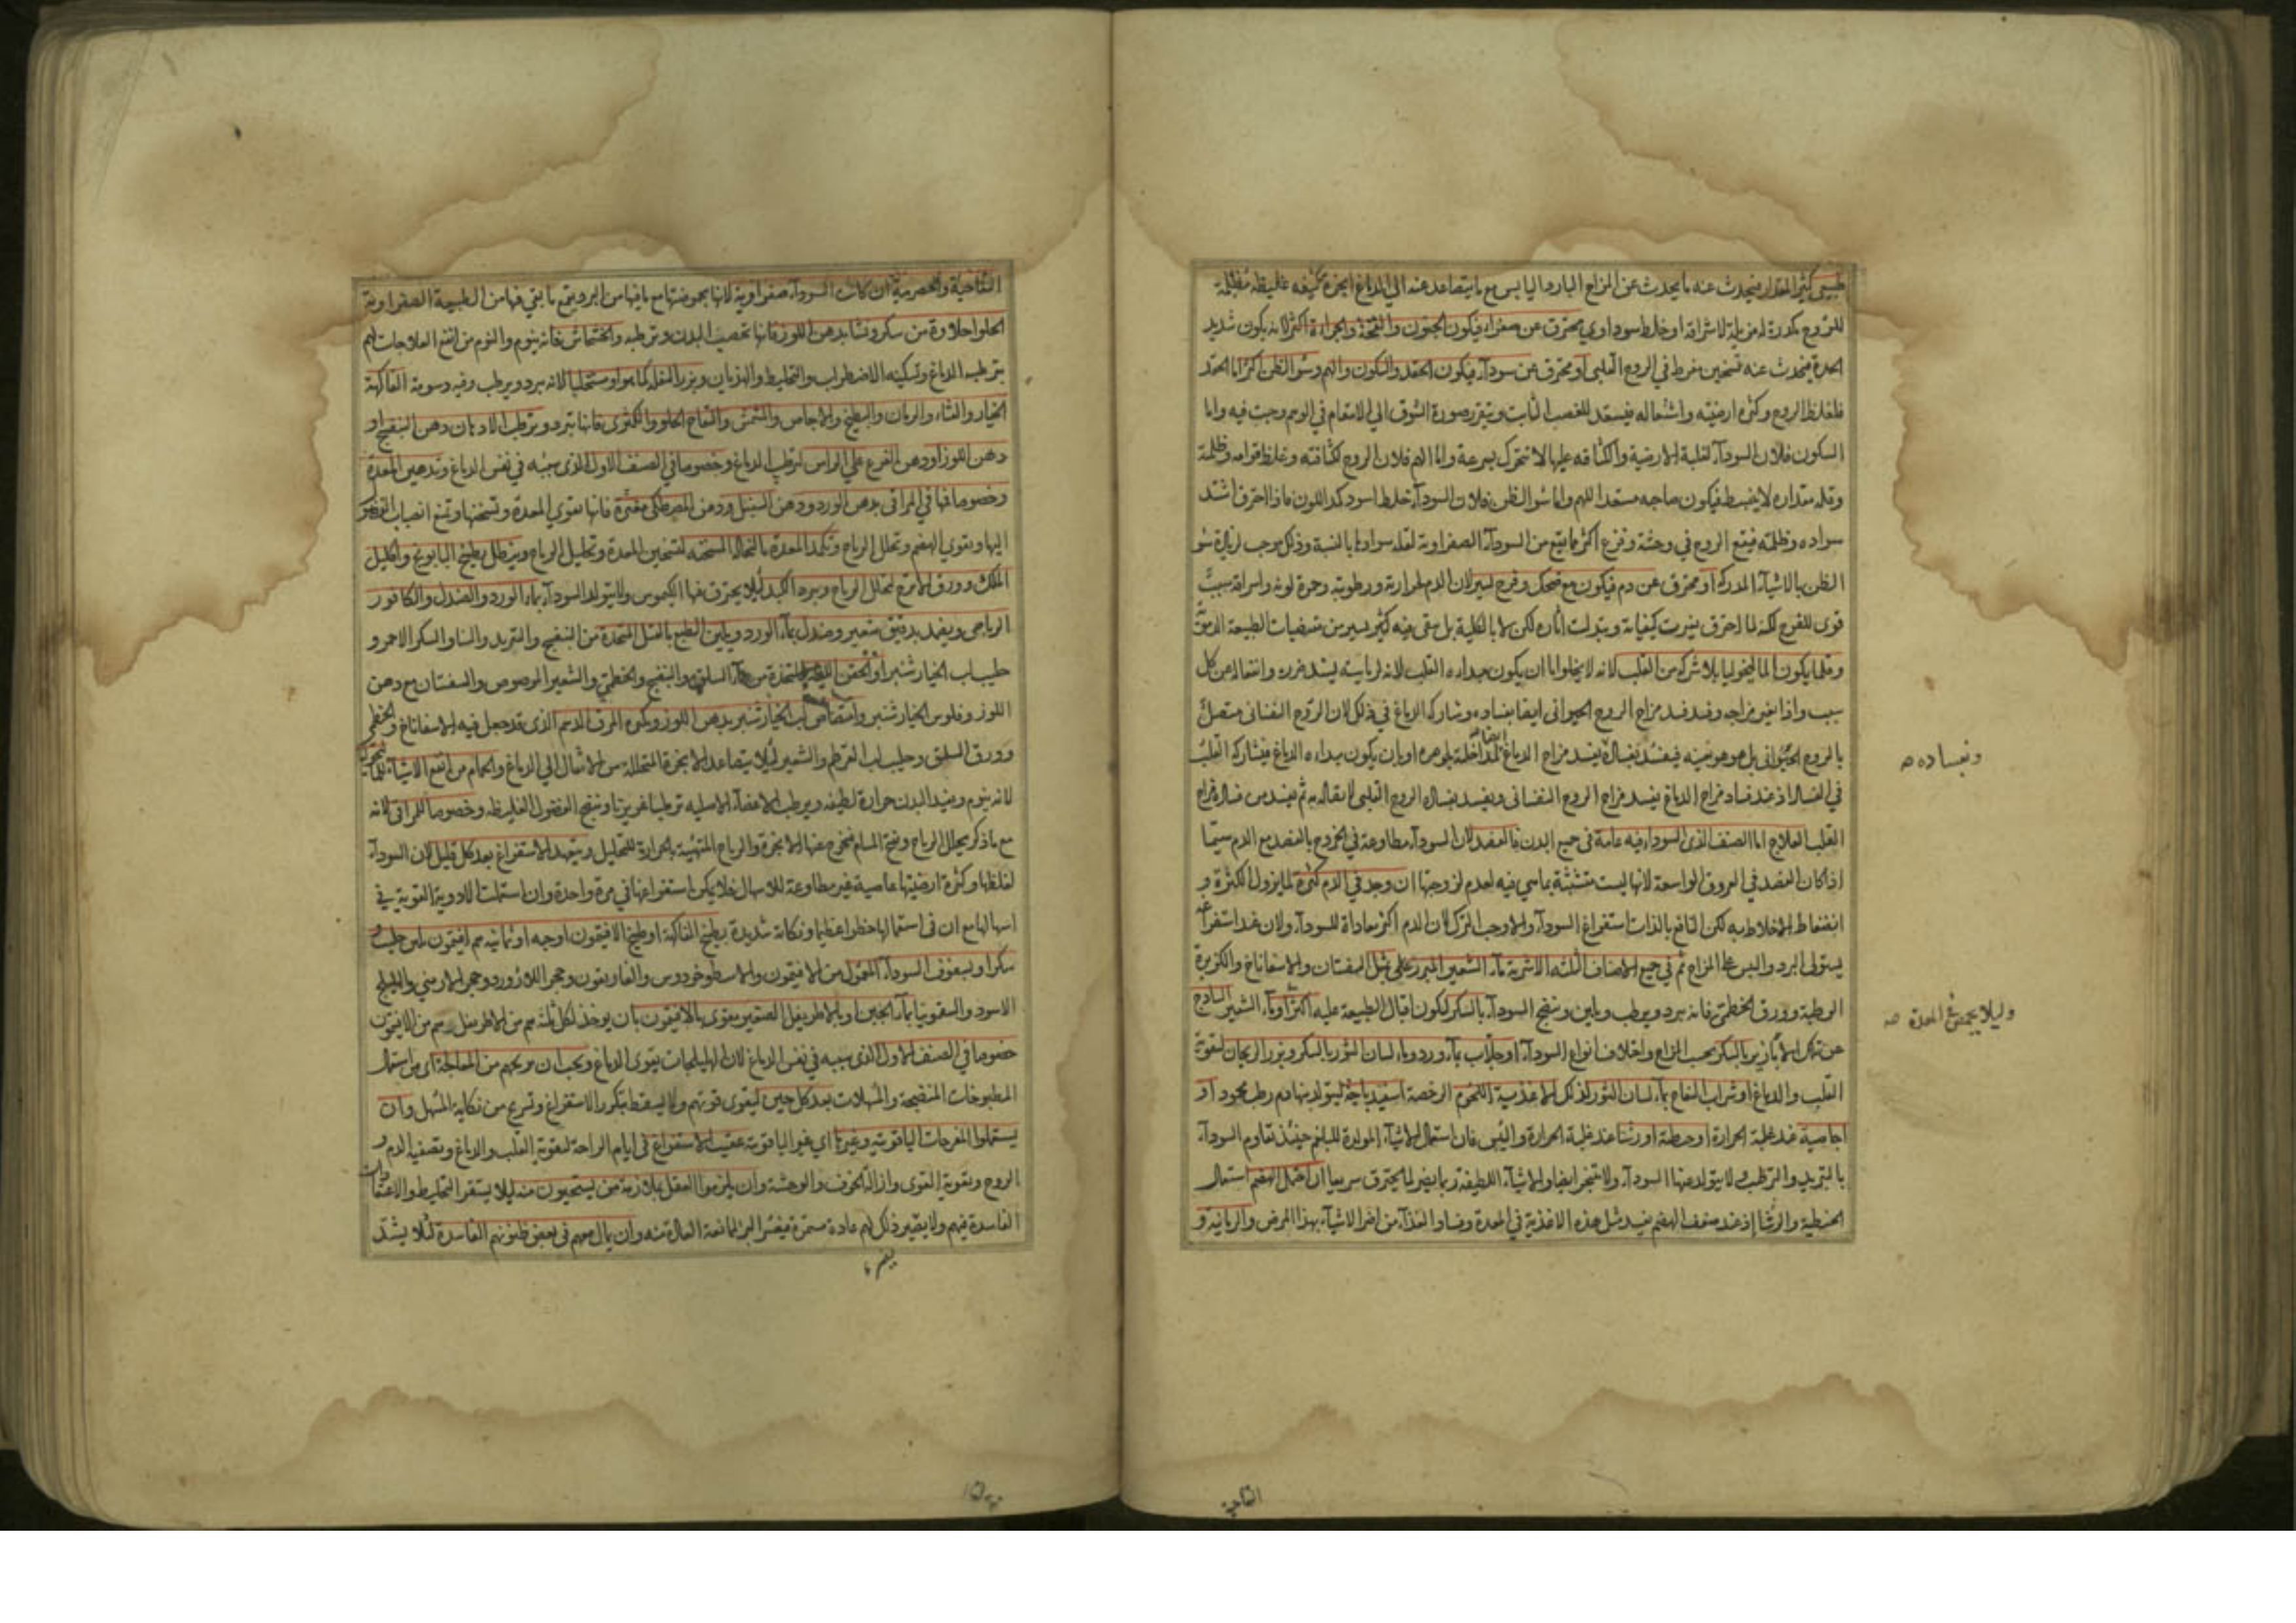 طبيعي كثير المقدار فيحدث عنه ما يحدث عن المزاج البارد اليابس مع ما يتصاعد عنه الي الدماغ ابخرة كثيفه غليظه مظلمة
للروح مكدرة له مزيلة لاشراقه او خلط سوداوي محترق عن صفراء فيكون الجنون والجراءة اكثر لانه يكون شديد
الحدة فيحدث عنه تسخين مفرط في الروح القلبي او محترق عن سوداء فيكون الحقد والسكون والهم وسو الظن اكثر اما الحقد
فلغلظ الروح وكثرة ارضيته واشتعاله فيستعد للغضب الثابت ويتقرر صورة الشوق الي الانتقام في الوهم وجت فيه واما
السكون فلان السوداء لغلبة الارضية واكثافه عليها لا تتحرك بسرعة واما الهم فلان الروح لكثافته وغلظ قوامه وظلمة
وقلة مقداره لا ينبسط فيكون صاحبه مستعدا للهم واما سو الظن فلان السوداء خلط اسود كمد اللون فاذا احترق اشتد
سواده وظلمته فيقع الروح في وحشة وفزع اكثر مما يقع من السوداء الصفراوية لقلة سوادها بالنسبة وذلك موجب لزيادة سو
الظن بالاشياء المدركة او محترق عن دم فيكون مع ضحك وفرح يسير لان الدم لحرارته ورطوبته وحمرة لونه واشراقه سبب
قوي للفرح لكنه لما احترق تغيرت كيفياته وتبدلت اثاره لكن لا بالكلية بل بقي فيه كثير يسير من مقتضيات الطبيعة الدموية
وقلما يكون المالنخوليا بلا شركة من القلب لانه لا يخلو اما ان يكون مبداءه القلب لانه لرياسته يشتد ضرره وانفعاله عن كل
سبب واذا تغير مزاجه وفسد فسد مزاج الروح الحيواني ايضا بفساده وشاركه الدماغ في ذلك لان الروح النفساني متصل
بالروح الحيواني بل هو هو بعينه فيفسد بفساده فيفسد مزاج الدماغ لمداخلته لجوهره او بان يكون مبداءه الدماغ فيشاركه القلب
في الفساد اذ عند فساد مزاج الدماغ يفسد مزاج الروح النفساني ويفسد بفساده الروح القلبي لاتصاله به ثم يفسد من فساده مزاج
القلب العلاج اما الصنف الذي السوداء فيه عامة في جميع البدن فالفصد لان السوداء مطاوعة في الخروج بالفصد مع الدم سيما
اذا كان الفصد في العروق الواسعة لانها ليست متشبثة بما هي فيه لعدم لزوجتها ان وجد في الدم كثرة لما يزول الكثرة و
انضغاط الاخلاط به لكن النافع بالذات استفراغ السوداء والا وجب الترك لان الدم اكثر معاداة للسوداء ولان عند استفراغه
يستولي البرد واليبس علي المزاج ثم في جميع الاصناف الثلثه الاشربة ماء الشعير المبزر علي مثل السفستان والاسفاناخ والكزبرة
الرطبة وورق الخطمي فانه يبرد ويرطب ويلين وينضج السوداء بالسكر لكون اقبال الطبيعة عليه اكثر او ماء الشعير الساذج
عن تلك الابازير بالسكر بحسب المزاج واختلاف انواع السوداء او جلاب بماء ورد وماء لسان الثور بالسكر وبزر الريحان لتقوية
القلب والدماغ او شراب التفاح بماء لسان الثور لذلك الاغذية اللحوم الرخصة اسفيدباجة ليتولد منها دم رطب محمود او
اجاصية عند غلبة الحرارة او حنطة او رشتا عند غلبة الحرارة واليبس فان استعمال الاشياء المولدة للبلغم حينئذ تقاوم السوداء
بالتبريد والترطيب ولا يتولد عنها السوداء ولا تتبخر ايضا والاشياء اللطيفة ربما يضر لما يحترق سريعا ان احتمل الهضم استعمال
الحنطية والرشتا اذ عند ضعف الهضم يفسد مثل هذه الاغذية في المعدة وفساد الغذاء من اضر الاشياء بهذا المرض والرمانية و
وبفساده صه
وليلا يحمض في المعدة صه
التفاحية
التفاحية والحصرمية ان كانت السوداء صفراوية لانها بحموضتها مع ما فيها من البرد يقمع ما بقي فيها من الطبيعة الصفراوية
الحلو احلاوة من سكر ونشا بدهن اللوز فانها تخصب البدن وترطبه والخشخاش فانه ينوم والنوم من انفع العلاجات لهم
بترطيبه الدماغ وتسكينه الاضطراب والتخليط والهذيان وبزر البقلة كما هو او مستحلبا لانه يبرد ويرطب وفيه دسومة الفاكهة
الخيار والقثاء والرمان والبطيخ والاجاص والمشمش والتفاح الحلو والكمثري فانها تبرد وترطب الادهان دهن البنفسج او
دهن اللوز او دهن القرع علي الراس لترطيب الدماغ وخصوصا في الصنف الاول الذي سببه في نفس الدماغ وتدهين المعدة
وخصوصا في المراقي بدهن الورد ودهن السنبل ودهن المصطكي مفترة فانها تقوي المعدة وتسخنها وتمنع انصباب
اليها ويقوي الهضم وتحلل الرياح وتكمد المعدة بالنخالة المسخنة لتسخين المعدة وتحليل الرياح وينطل بطبيخ البابونج واكليل
الملك وورق الاترج لتحلل الرياح وتبرد الكبد ليلا يحترق فيها الكيموس ولا يتولد السوداء بماء الورد والصندل والكافور
الرياحي ويضمد بدقيق شعير وصندل بماء الورد ويلين الطبع بالفتل المتخذة من البنفسج والتربد والسنا والسكر الاحمر و
حليب لب الخيار شنبر او الحقن اللينة المتخذة من ماء السلق والبنفسج والخطمي والشعير المرضوض والسفستان مع دهن
اللوز وفلوس الخيار شنبر وامتصاص لب الخيار شنبر بدهن اللوز ويكون المرق الدسم الذي قد جعل فيه الاسفاناخ والخطمي
وورق السلق وحليب لب القرطم والشعير ليلا يتصاعد الابخرة المتحللة من الاثفال الي الدماغ والحمام من انفع الاشياء
لانه ينوم ويفيد البدن حرارة لطيفه ويرطب الاعضاء الاصليه ترطيبا غريزيا وينضج الفضول الغليظه وخصوصا للمراقي لانه
مع ما ذكر يحلل الرياح ويفتح المسام فتخرج عنها الابخرة والرياح المتهيئة بالحرارة للتحليل ويتعهد الاستفراغ بعد كل قليل لان السوداء
لغلظها وكثرة ارضيتها عاصية غير مطاوعة للاسهال فلا يمكن استفراغها في مرة واحدة وان استعملت الادوية القوية في
اسهالها مع ان في استعمالها خطرا عظيما ونكاية شديدة بطبيخ الفاكهة او طبيخ الافتيمون اوجبه او ثمانيه دراهم افتيمون بلبن حليب و
سكر او بسفوف السوداء المعمول من الافتيمون والاسطوخودوس والغاريقون وحجر اللازورد وحجر الارمني والهليلج
الاسود والسقمونيا بماء الجبن او بالاطريفل الصغير مقوي بالافتيمون بان يوخذ لكل ثلثه دراهم من الاطريفل درهم من الافتيمون
خصوصا في الصنف الاول الذي سببه في نفس الدماغ لان الهليلجات يقوي الدماغ ويجب ان تريحهم من المعالجة اي من استعمال
المطبوخات المنضجة والمسهلات بعد كل حين لتقوي قوتهم ولا يسقط بتكرر الاستفراغ وتستريح من نكاية المسهل وان
يستعملوا المفرحات الياقوتيه وغيرها اي غير الياقوتية عقيب الاستفراغ في ايام الراحة لتقوية القلب والدماغ وتصفية الدم و
الروح وتقوية القوي وازالة الخوف والوحشة وان يلزموا العقل بملازمة من يستحيون منه ليلا يستقر التخليط والاعتقادات
الفاسدة فيهم ولا يصير ذلك لهم عادة مستمرة فيعسر البرء لممانعة العادة منه وان يمال معهم في بعض ظنونهم الفاسدة لئلا يشتد